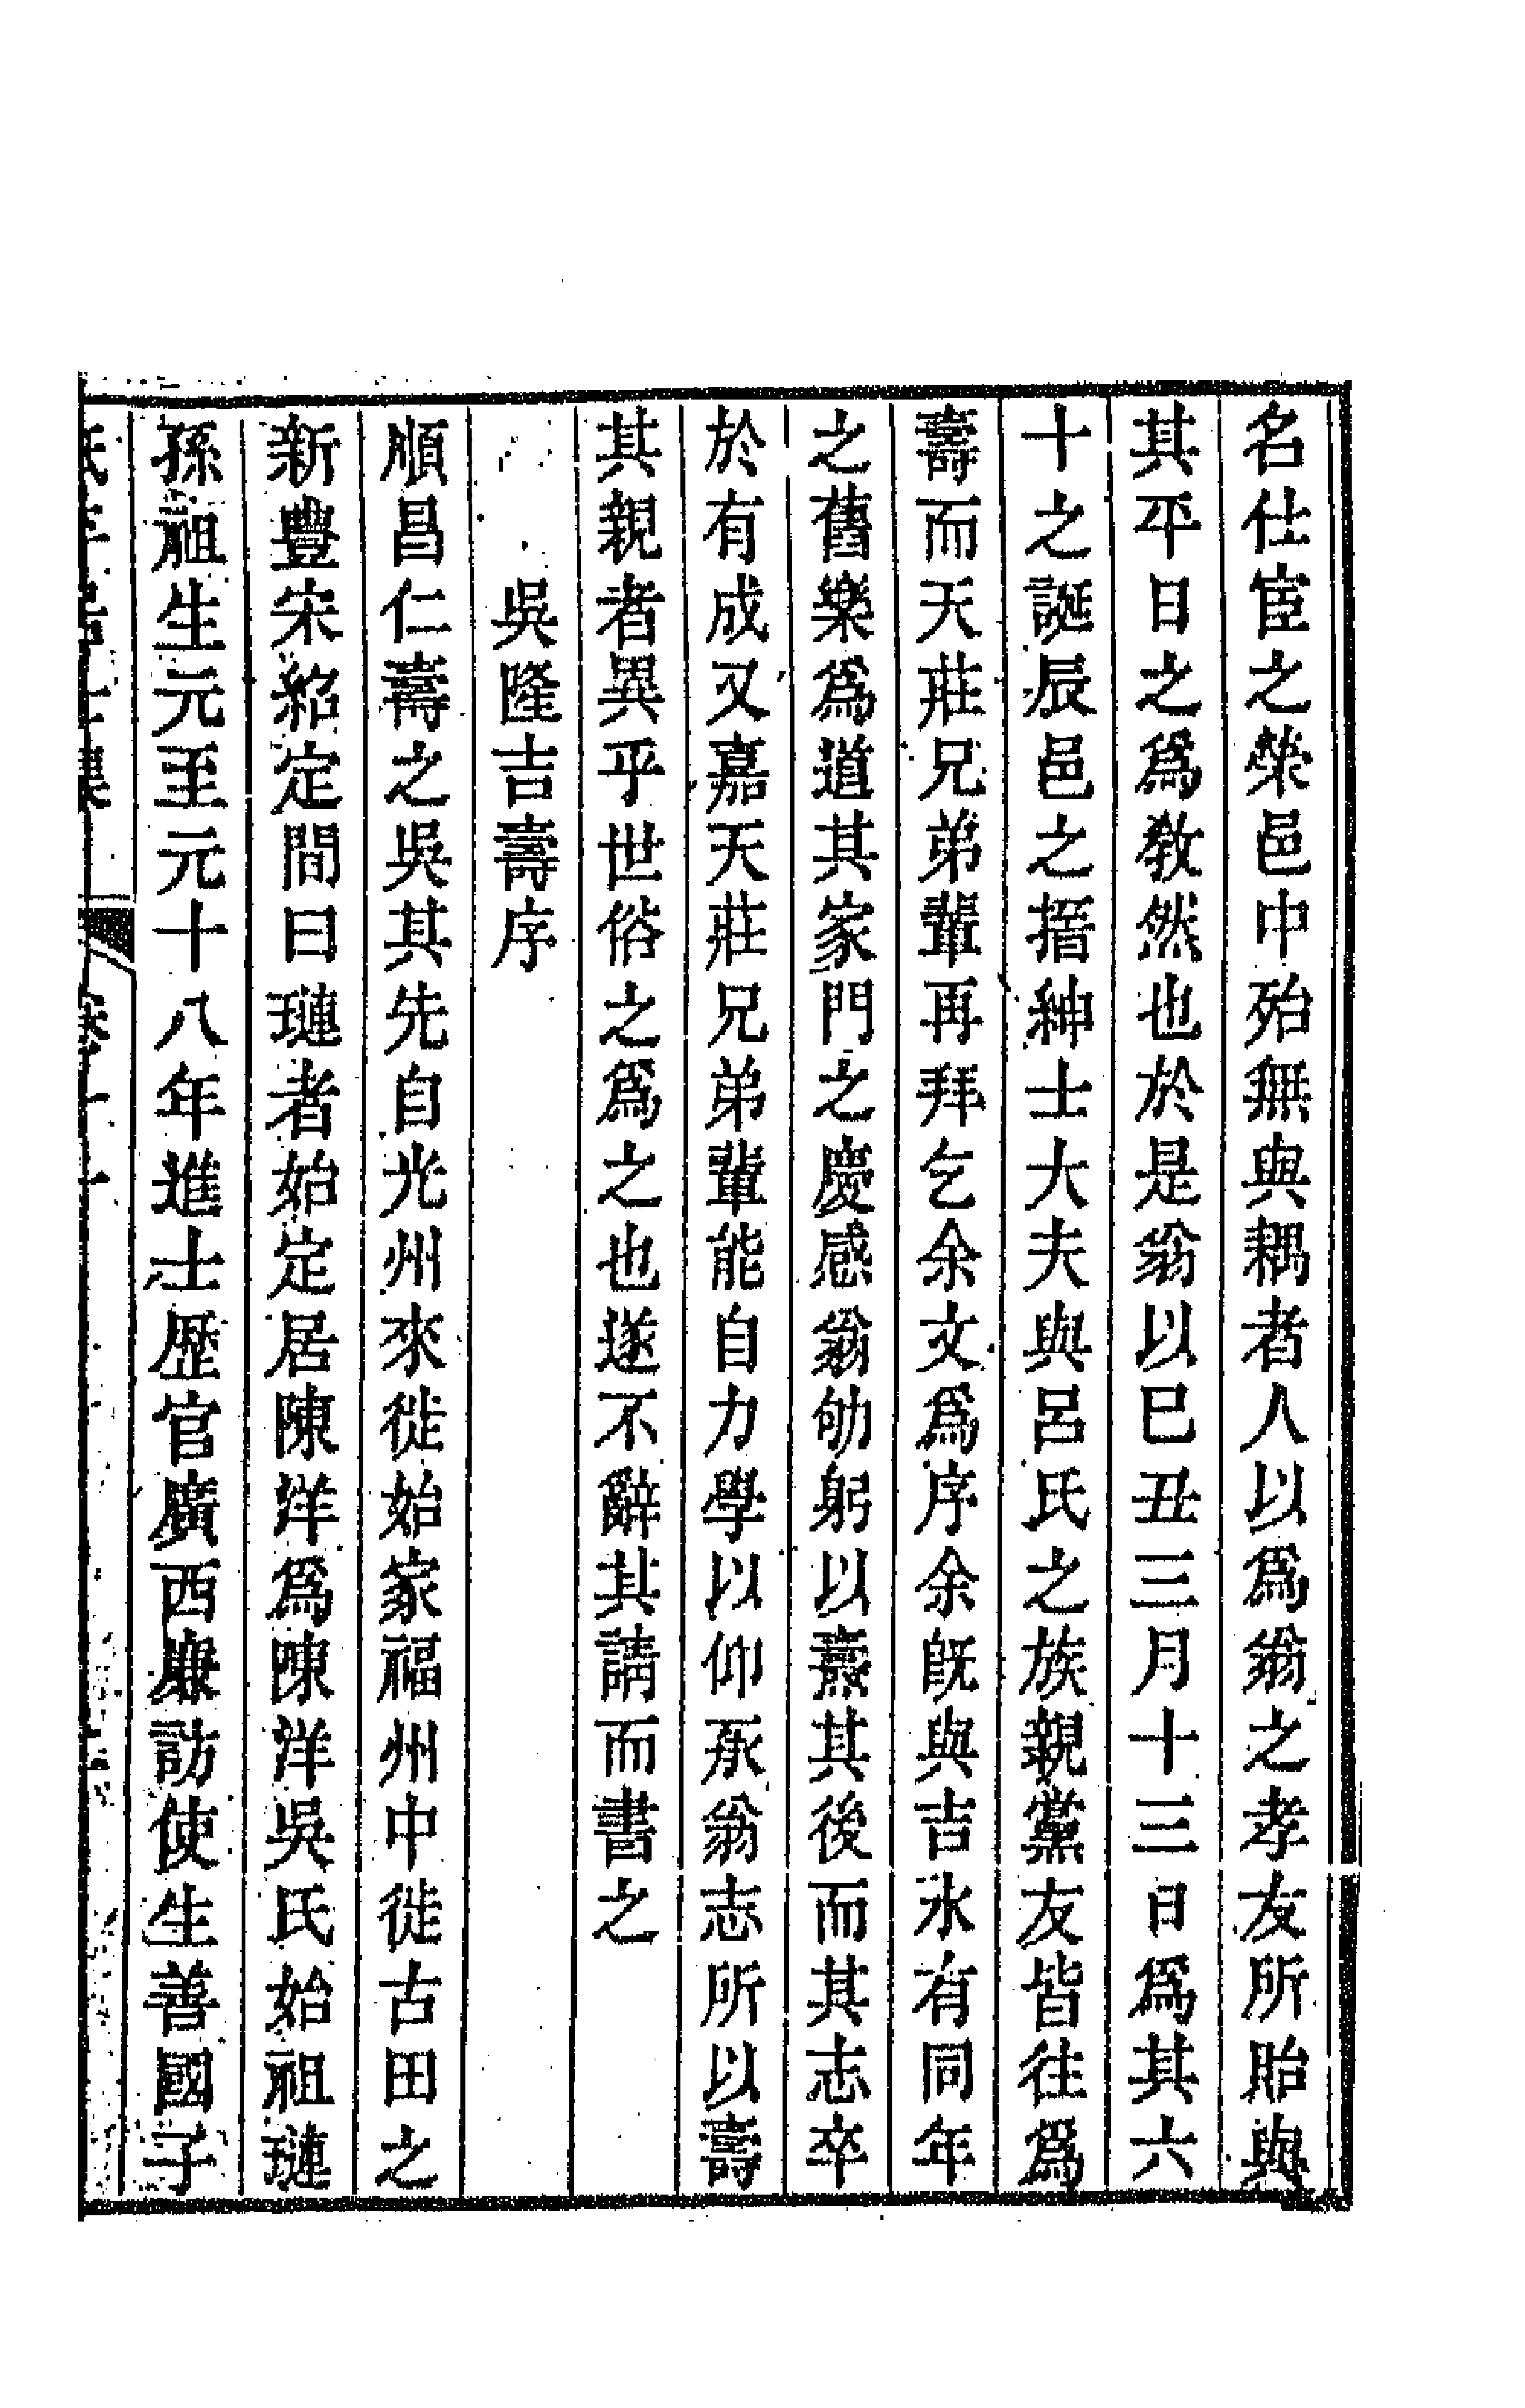 名仕宦之榮邑中殆無與耦者人以爲翁之孝友所貽與
其平日之爲教然也於是翁以巳丑三月十三日爲其六
十之誕辰邑之搢紳士大夫與呂氏之族親黨友皆往爲
壽而天莊兄弟輩再拜乞余文爲序余旣與吉水有同年
之舊樂爲道其家門之慶感翁劬躬以燾其後而其志卒
於有成又嘉天莊兄弟輩能自力學以仰承翁志所以壽
其親者異乎世俗之爲之也遂不辭其請而書之
吳隆吉壽序
順昌仁壽之吳其先自光州來徙始家福州中徙古田之
新豐宋紹定間曰璉者始定居陳洋爲陳洋吳氏始祖璉
孫祖生元至元十八年進士歷官廣西廉訪使生善國子